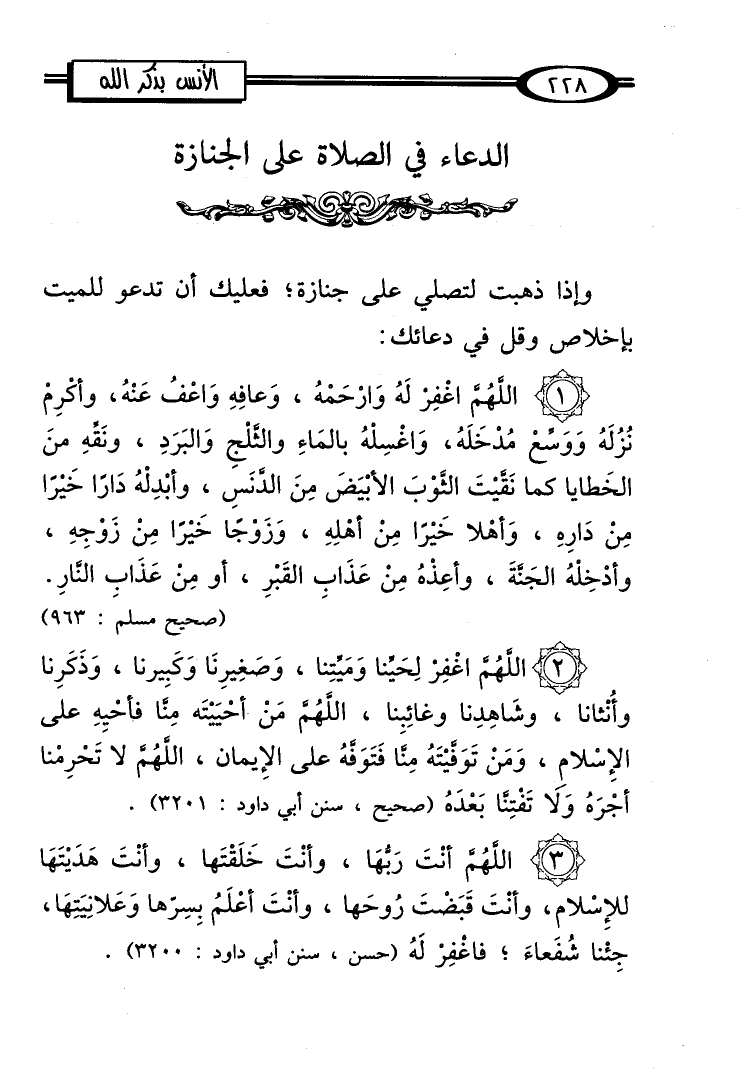 الأنس بذكر الله
٢٢٨
الدعاء في الصلاة على الجنازة
وإذا ذهبت لتصلي على جنازة؛ فعليك أن تدعو للميت
بإخلاص وقل في دعائك:
١ اللَّهُمَّ اغْفِرْ لَهُ وَارْحَمْهُ ، وَعافِهِ وَاعْفُ عَنْهُ، وأكْرِمْ
نُزُلَهُ وَوَسِّعْ مُدْخَلَهُ، وَاغْسِلْهُ بالمَاءِ والثَّلْجِ وَالبَرَدِ ، ونَقِّهِ منَ
الخَطايا كما نَقَّيْتَ الثَّوْبَ الأبْيَضَ مِنَ الدَّنَسِ ، وأبْدِلْهُ دَارًا خَيْرًا
مِنْ دَارِهِ ، وَأهْلا خَيْرًا مِنْ أهْلِهِ ، وَزَوْجًا خَيْرًا مِنْ زَوْجِهِ ،
وأدْخِلْهُ الجَنَّةَ ، وأعِذْهُ مِنْ عَذَابِ القَبْرِ ، أو مِنْ عَذَابِ النَّارِ.
(صحيح مسلم : ٩٦٣)
٢ اللَّهُمَّ اغْفِرْ لِحَيِّنا وَمَيِّتِنا ، وَصَغِيرِنَا وَكَبِيرِنا ، وَذَكَرِنا
وأُنْثانا ، وشَاهِدِنا وغائِبِنا ، اللَّهُمَّ مَنْ أحْيَيْتَه مِنَّا فأحْيِهِ على
الإِسْلامِ ، وَمَنْ تَوَفَّيْتَهُ مِنَّا فَتَوَفَّهُ على الإِيمان ، اللَّهُمَّ لا تَحْرِمْنا
أجْرَهُ وَلَا تَفْتِنَّا بَعْدَهُ (صحيح ، سنن أبي داود : ٣٢٠١) .
٣ اللَّهُمَّ أنْتَ رَبُّهَا ، وأنْتَ خَلَقْتَها ، وأنْتَ هَدَيْتَهَا
للإِسْلام، وأنْتَ قَبَضْتَ رُوحَها ، وأنْتَ أعْلَمُ بِسِرّها وَعَلانِيَتِهَا،
جِئْنا شُفَعاءَ ؛ فاغْفِرْ لَهُ (حسن ، سنن أبي داود : ٣٢٠٠) .